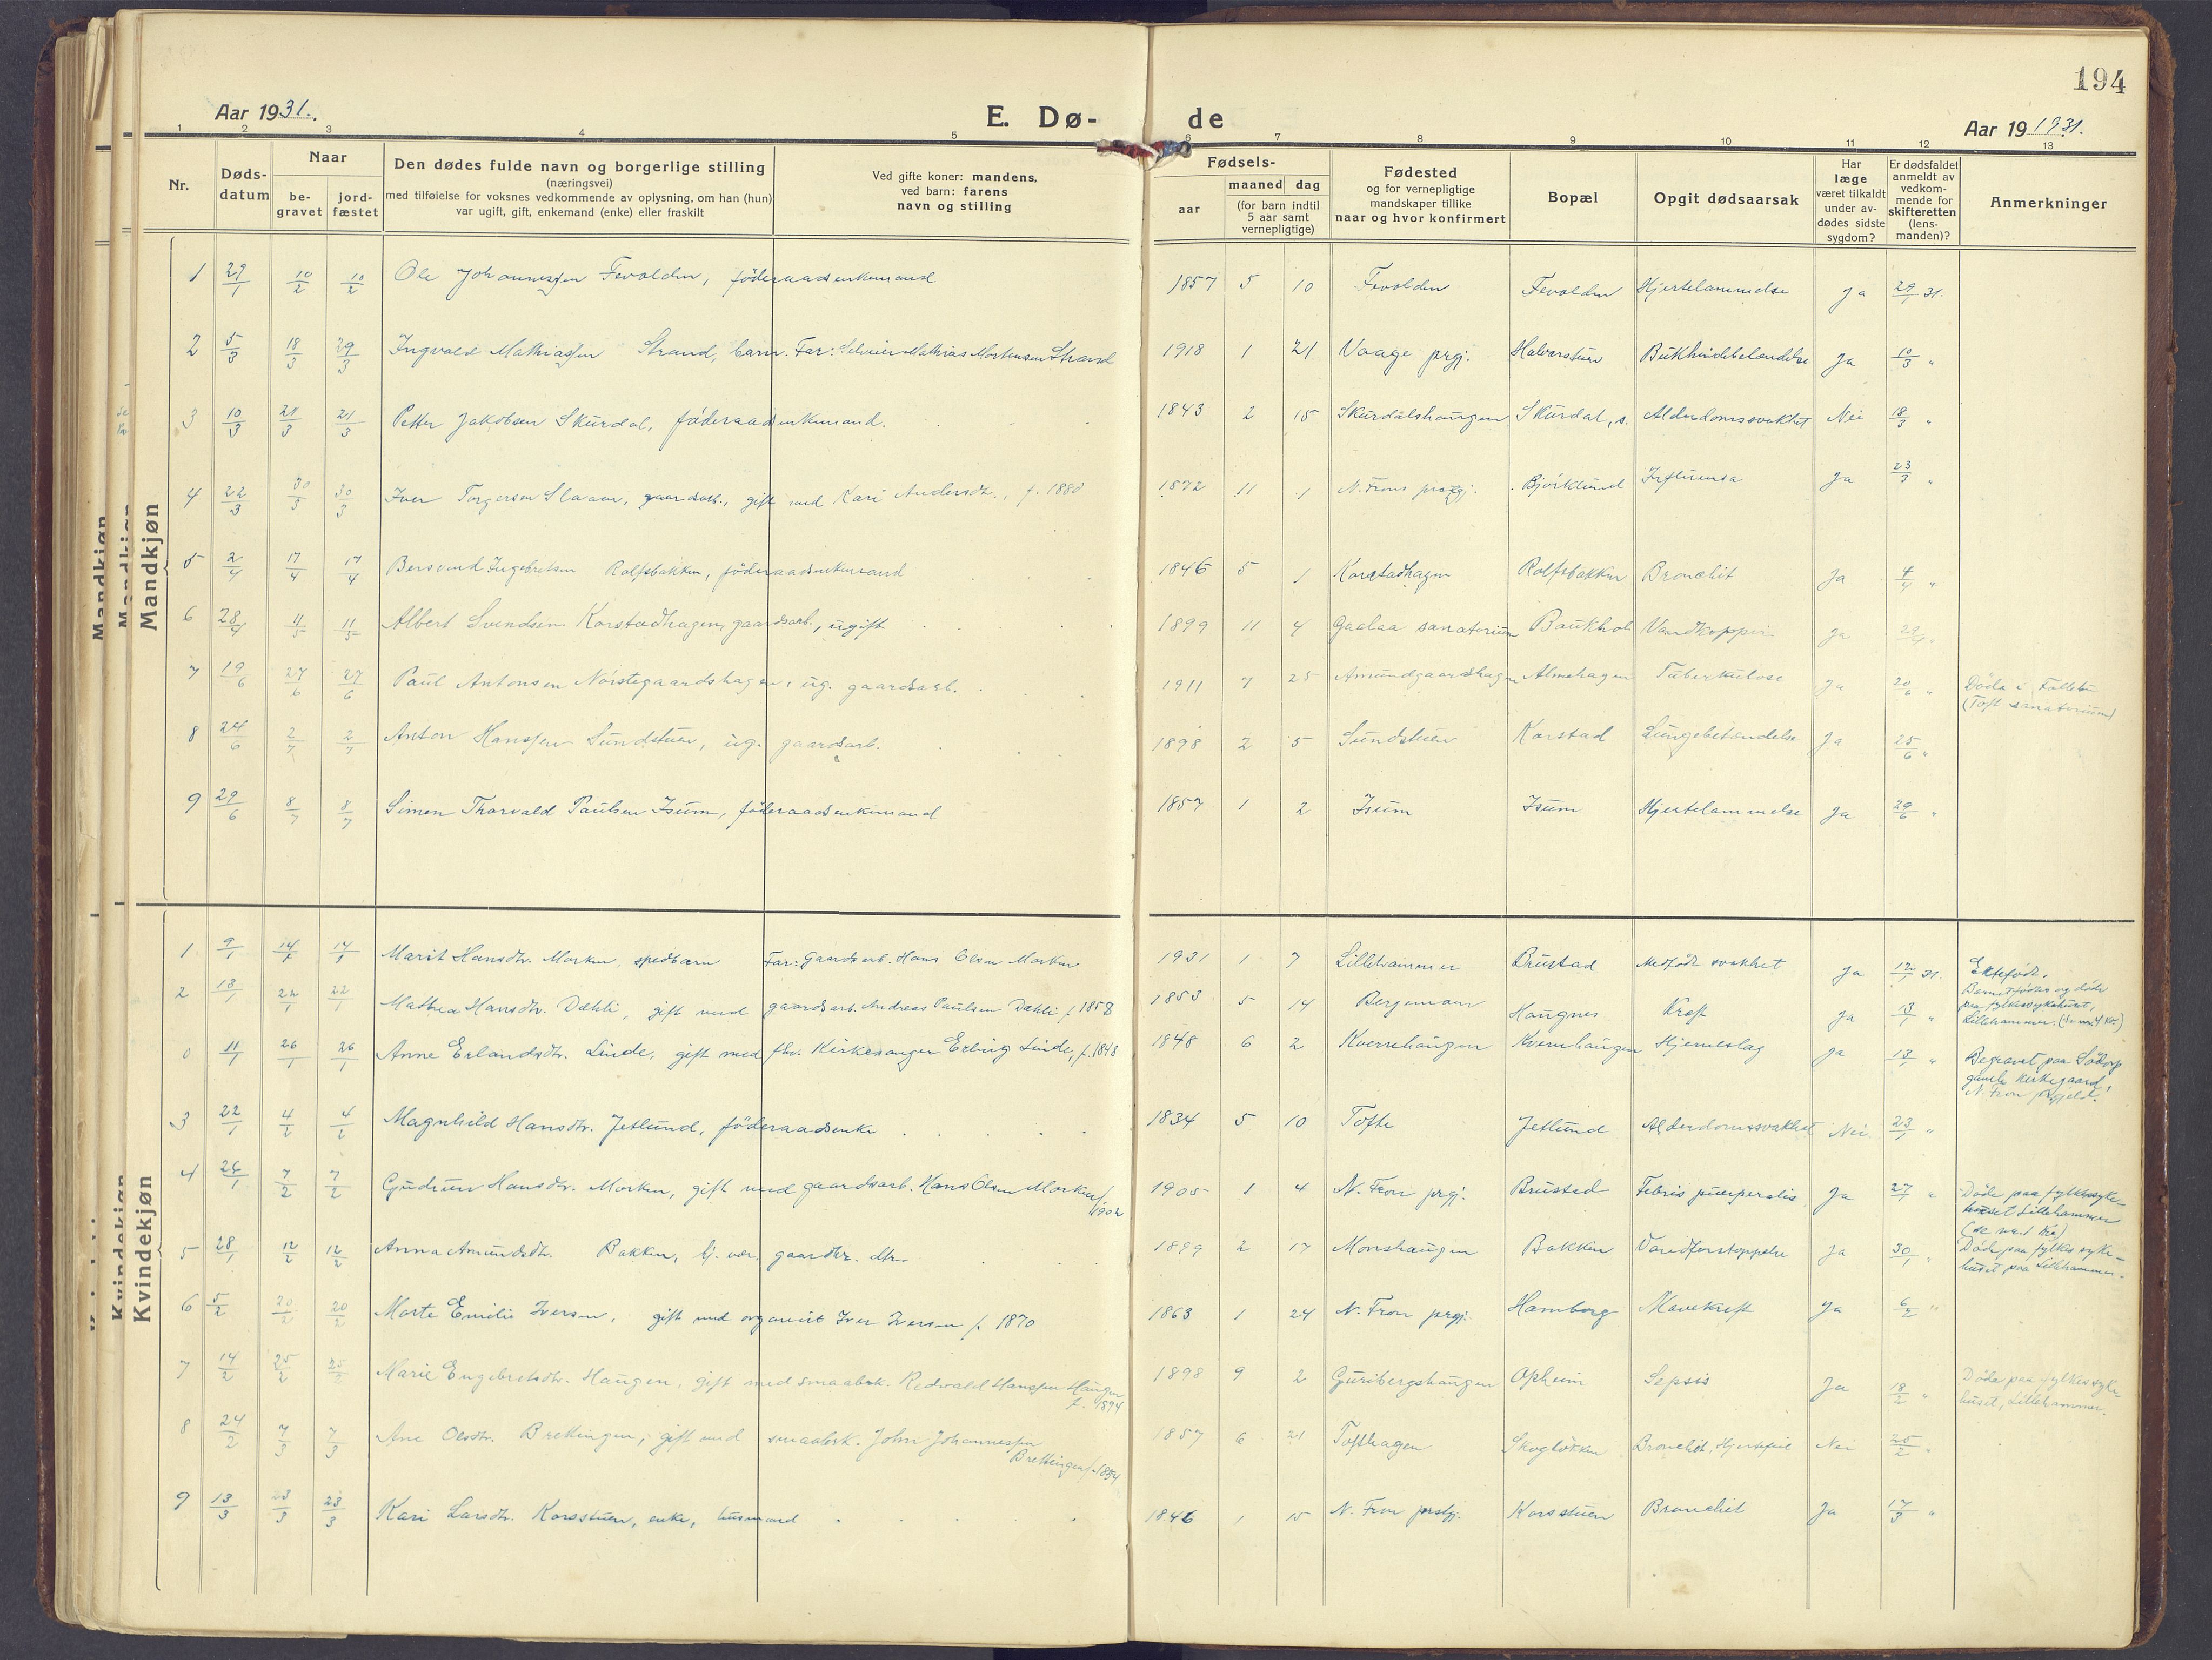 194
Aar 1931.
E. Dø-
de
Aar 19 1931.
1 2 3 4 5 6 7 8 9 10 11 12 13
Nr.
Døds-
datum
Naar
be-
gravet
jord-
fæstet
Den dødes fulde navn og borgerlige stilling
(næringsvei)
med tilføielse for voksnes vedkommende av oplysning, om han (hun)
var ugift, gift, enkemand (enke) eller fraskilt
Ved gifte koner: mandens,
ved barn: farens
navn og stilling
Fødsels-
aar
maaned dag
(for barn indtil
5 aar samt
vernepligtige)
Fødested
og for vernepligtige
mandskaper tillike
naar og hvor konfirmert
Bopæl
Opgit dødsaarsak
Har
læge
været tilkaldt
under av-
dødes sidste
sygdom?
Er dødsfaldet
anmeldt av
vedkom-
mende for
skifteretten
(lens-
manden)?
Anmerkninger
Mandkjøn
1 29/1 10/2 10/2 Ole Johannessen Fevolden, föderaadsenkemand 1857 5 10 Fevolden Fevolden Hjertelammelse Ja 29/1 31.
2 5/3 18/3 29/3 Ingvald Mathiassen Strand, barn. Far: Selveier Mathias Mortensen Strand 1918 1 21 Vaage prgj. Halvorstuen Bukhindebetændelse Ja 10/3 "
3 10/3 21/3 21/3 Petter Jakobsen Skurdal, föderaadsenkemand. 1843 2 15 Skurdalshaugen Skurdal, s. Alderdomssvakhet Nei 18/3 "
4 22/3 30/3 30/3 Iver Torgersen Slaaen, gaardsarb., gift med Kari Andersdtr., f. 1880 1872 11 1 N. Frons prgj. Björklund Influensa Ja 23/3 "
5 2/4 17/4 17/4 Bersvend Ingebretsen Rolfsbakken, föderaadsenkemand 1846 5 1 Korstadhagen Rolfsbakken Bronchit Ja 4/4 "
6 28/4 11/5 11/5 Albert Svendsen Korstadhagen, gaardsarb., ugift 1899 11 4 Gaalaa sanatorium Baukhol Vandkopper Ja 29/4 "
7 19/6 27/6 27/6 Paul Antonsen Nörstegaardshagen, ug. gaardsarb. 1911 7 25 Amundgaardshagen Almehagen Tuberkulose Ja 20/6 " Döde i Follebu
(Toft sanatorium)
8 24/6 2/7 2/7 Anton Hanssen Sundstuen, ug. gaardsarb. 1898 2 5 Sundstuen Korstad Lungebetændelse Ja 25/6 "
9 29/6 8/7 8/7 Simen Thorvald Paulsen Isum, föderaadsenkemand 1857 1 2 Isum Isum Hjertelammelse Ja 29/6 "
Kvindekjøn
1 9/1 14/1 14/1 Marit Hansdtr. Morken, spedbarn Far: Gaardsarb. Hans Olsen Morken 1931 1 7 Lillehammer Brustad Medfödt svakhet Ja 12/1 31. Ektefödt.
Barnet födtes og döde
paa fylkessykehuset,
Lillehammer. (Se nr. 4 Kv.)
2 18/1 22/1 22/1 Mathea Hansdtr. Dæhli, gift med gaardsarb. Andreas Paulsen Dæhli f. 1858 1853 5 14 Bergemoen Haugnes Kræft Ja 13/1 "
0 11/1 26/1 26/1 Anne Erlandsdtr. Linde, gift med fhv. Kirkesanger Erling Linde, f. 1848 1848 6 2 Kvernehaugen Kvernehaugen Hjerneslag Ja 13/1 " Begravet paa Södorp
gamle kirkegaard,
N. Fron prgjeld.
3 22/1 4/2 4/2 Magnhild Hansdtr. Jetlund, föderaadsenke 1834 5 10 Tofte Jetlund Alderdomssvakhet Nei 23/1 "
4 26/1 7/2 7/2 Gudrun Hansdtr. Morken, gift med gaardsarb. Hans Olsen Morken f.
1902 1905 1 4 N. Fron prgj. Brustad Febris puerperalis Ja 27/1 " Döde paa fylkessyke-
huset Lillehammer
5 28/1 12/2 12/2 Anna Amundsdtr. Bakken, hj. vær. gaardbr. dtr. 1899 2 17 Monshaugen Bakken Ja 30/1 " Döde paa fylkessyke-
huset paa Lillehammer.
6 5/2 20/2 20/2 Marte Emilie Iversen, gift med organist Iver Iversen f. 1870 1863 1 24 N. Fron prgj. Hamborg Mavekreft Ja 6/2 "
7 14/2 25/2 25/2 Marie Engebretsdtr. Haugen, gift med smaabruk. Redvald Hanssen Haugen
f. 1894 1898 9 2 Guribergshaugen Opheim Sepsis Ja 18/2 " Döde paa fylkessyke-
huset, Lillehammer.
8 24/2 7/3 7/3 Ane Olsdtr. Brettingen, gift med smaabruk. John Johannessen
Brettingen f. 1854 1857 6 21 Tofthagen Skoglökken Bronchit, Hjertefeil Nei 25/2 "
9 13/3 23/3 23/3 Kari Larsdtr. Korsstuen, enke, husmand 1846 1 15 N. Fron prstgj. Korsstuen Bronchit Ja 17/3 "